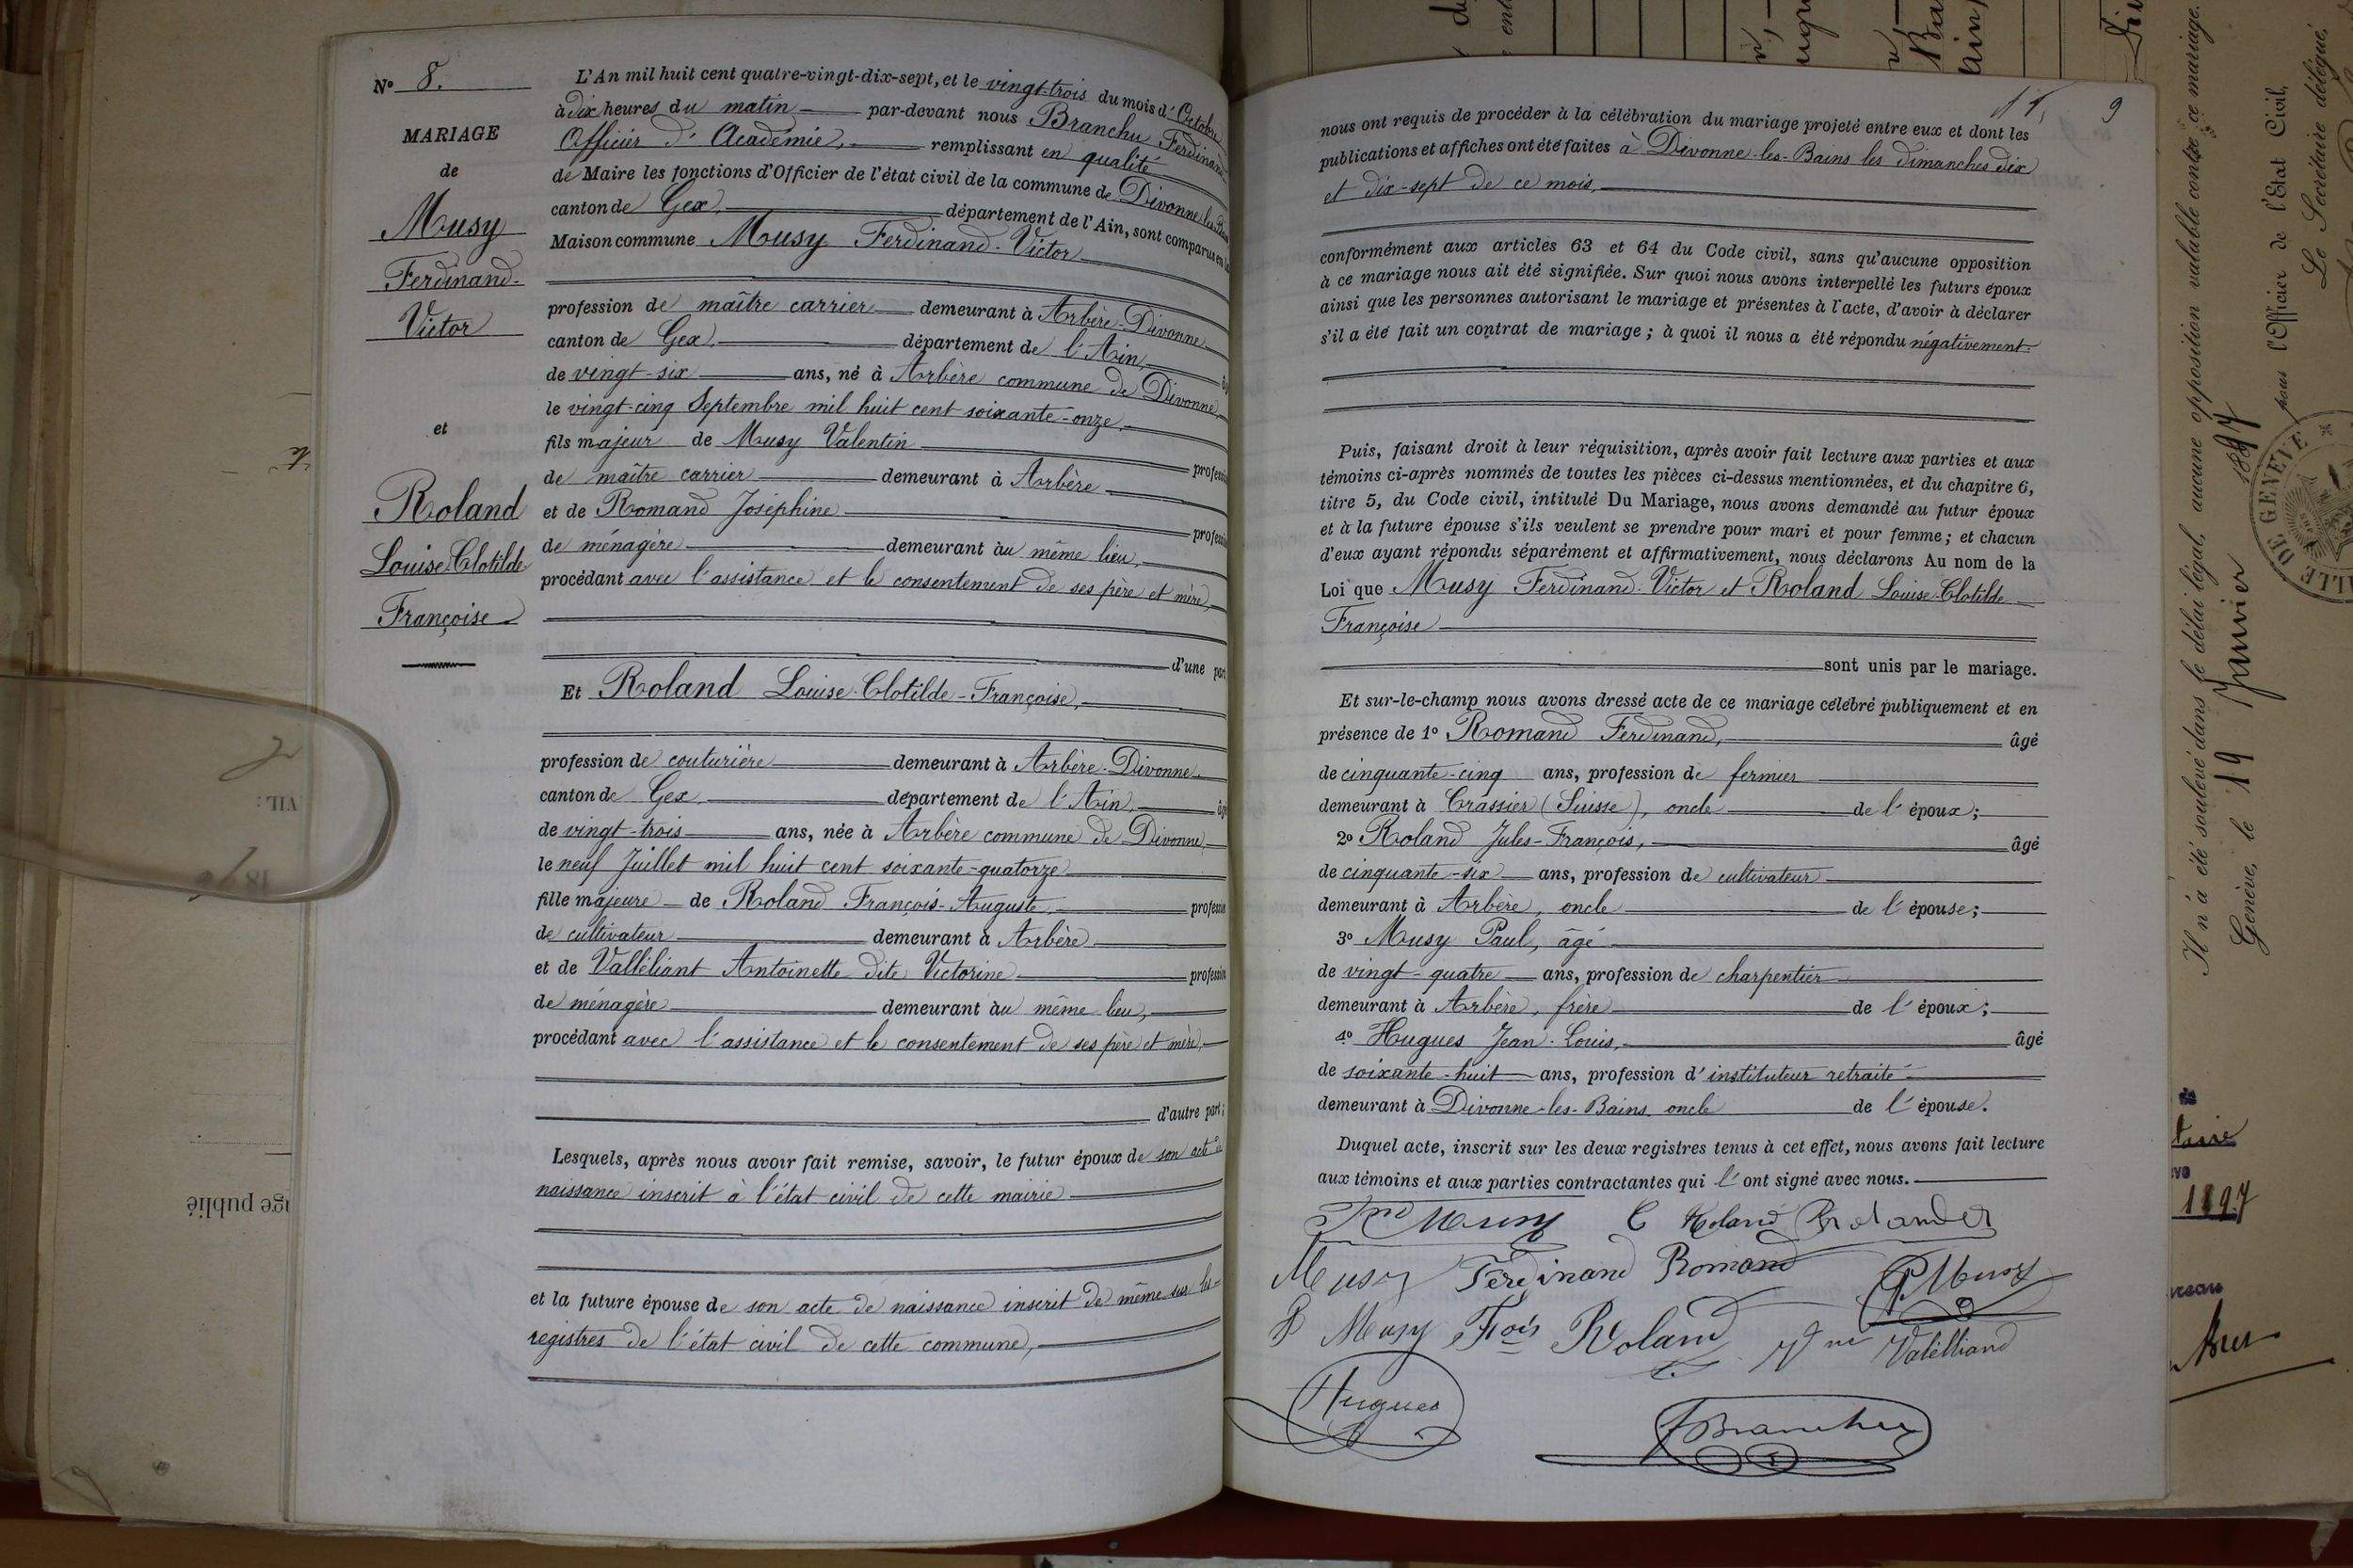 N° 8.
MARIAGE
de
Musy
Ferdinand-
Victor
et
Roland
Louise-Clotilde
Françoise
L'An mil huit cent quatre-vingt-dix-sept, et le vingt-trois du mois d'Octobre
à dix heures du matin par-devant nous Branchu Ferdinand
Officier d'Académie, remplissant en qualité
de Maire les fonctions d'Officier de l'état civil de la commune de Divonne-les-Bains
canton de Gex, département de l'Ain, sont comparus en la
Maison commune Musy Ferdinand-Victor
profession de maître carrier demeurant à Arbère-Divonne
canton de Gex, département de l'Ain,
de vingt-six ans, né à Arbère commune de Divonne,
le vingt-cinq Septembre mil huit cent soixante-onze,
fils majeur de Musy Valentin
profession
de maître carrier demeurant à Arbère
et de Romand Joséphine
profession
de ménagère demeurant au même lieu,
procédant avec l'assistance et le consentement de ses père et mère,
d'une part
Et Roland Louise-Clotilde-Françoise,
profession de couturière demeurant à Arbère-Divonne
canton de Gex, département de l'Ain,
de vingt-trois ans, née à Arbère commune de Divonne,
le neuf Juillet mil huit cent soixante-quatorze
fille majeure de Roland François-Auguste, profession
de cultivateur demeurant à Arbère
et de Valléliant Antoinette dite Victorine profession
de ménagère demeurant au même lieu,
procédant avec l'assistance et le consentement de ses père et mère,
d'autre part;
Lesquels, après nous avoir fait remise, savoir, le futur époux de son acte de
naissance inscrit à l'état civil de cette mairie
et la future épouse de son acte de naissance inscrit de même sur les
registres de l'état civil de cette commune,
9
nous ont requis de procéder à la célébration du mariage projeté entre eux et dont les
publications et affiches ont été faites à Divonne-les-Bains les dimanches dix
et dix-sept de ce mois,
conformément aux articles 63 et 64 du Code civil, sans qu'aucune opposition
à ce mariage nous ait été signifiée. Sur quoi nous avons interpellé les futurs époux
ainsi que les personnes autorisant le mariage et présentes à l'acte, d'avoir à déclarer
s'il a été fait un contrat de mariage; à quoi il nous a été répondu négativement.
Puis, faisant droit à leur réquisition, après avoir fait lecture aux parties et aux
témoins ci-après nommés de toutes les pièces ci-dessus mentionnées, et du chapitre 6,
titre 5, du Code civil, intitulé Du Mariage, nous avons demandé au futur époux
et à la future épouse s'ils veulent se prendre pour mari et pour femme; et chacun
d'eux ayant répondu séparément et affirmativement, nous déclarons Au nom de la
Loi que Musy Ferdinand-Victor et Roland Louise-Clotilde
Françoise
sont unis par le mariage.
Et sur-le-champ nous avons dressé acte de ce mariage célébré publiquement et en
présence de 1° Romand Ferdinand, âgé
de cinquante-cinq ans, profession de fermier
demeurant à Crassier (Suisse), oncle de l'époux;
2° Roland Jules-François, âgé
de cinquante-six ans, profession de cultivateur
demeurant à Arbère, oncle de l'épouse;
3° Musy Paul, âgé
de vingt-quatre ans, profession de charpentier
demeurant à Arbère, frère de l'époux;
4° Hugues Jean-Louis, âgé
de soixante-huit ans, profession d'instituteur retraité
demeurant à Divonne-les-Bains oncle de l'épouse.
Duquel acte, inscrit sur les deux registres tenus à cet effet, nous avons fait lecture
aux témoins et aux parties contractantes qui l'ont signé avec nous.
Musy C Roland
Musy Ferdinand Romand P. Musy
Musy Fois Roland Valélliand
Hugues
Branchu
Il n'a été soulevé dans le délai légal, aucune opposition valable contre ce mariage.
Genève, le 19 Janvier 1897
pour l'Officier de l'Etat Civil,
Le Secrétaire délégué,
VILLE DE GENEVE
1897